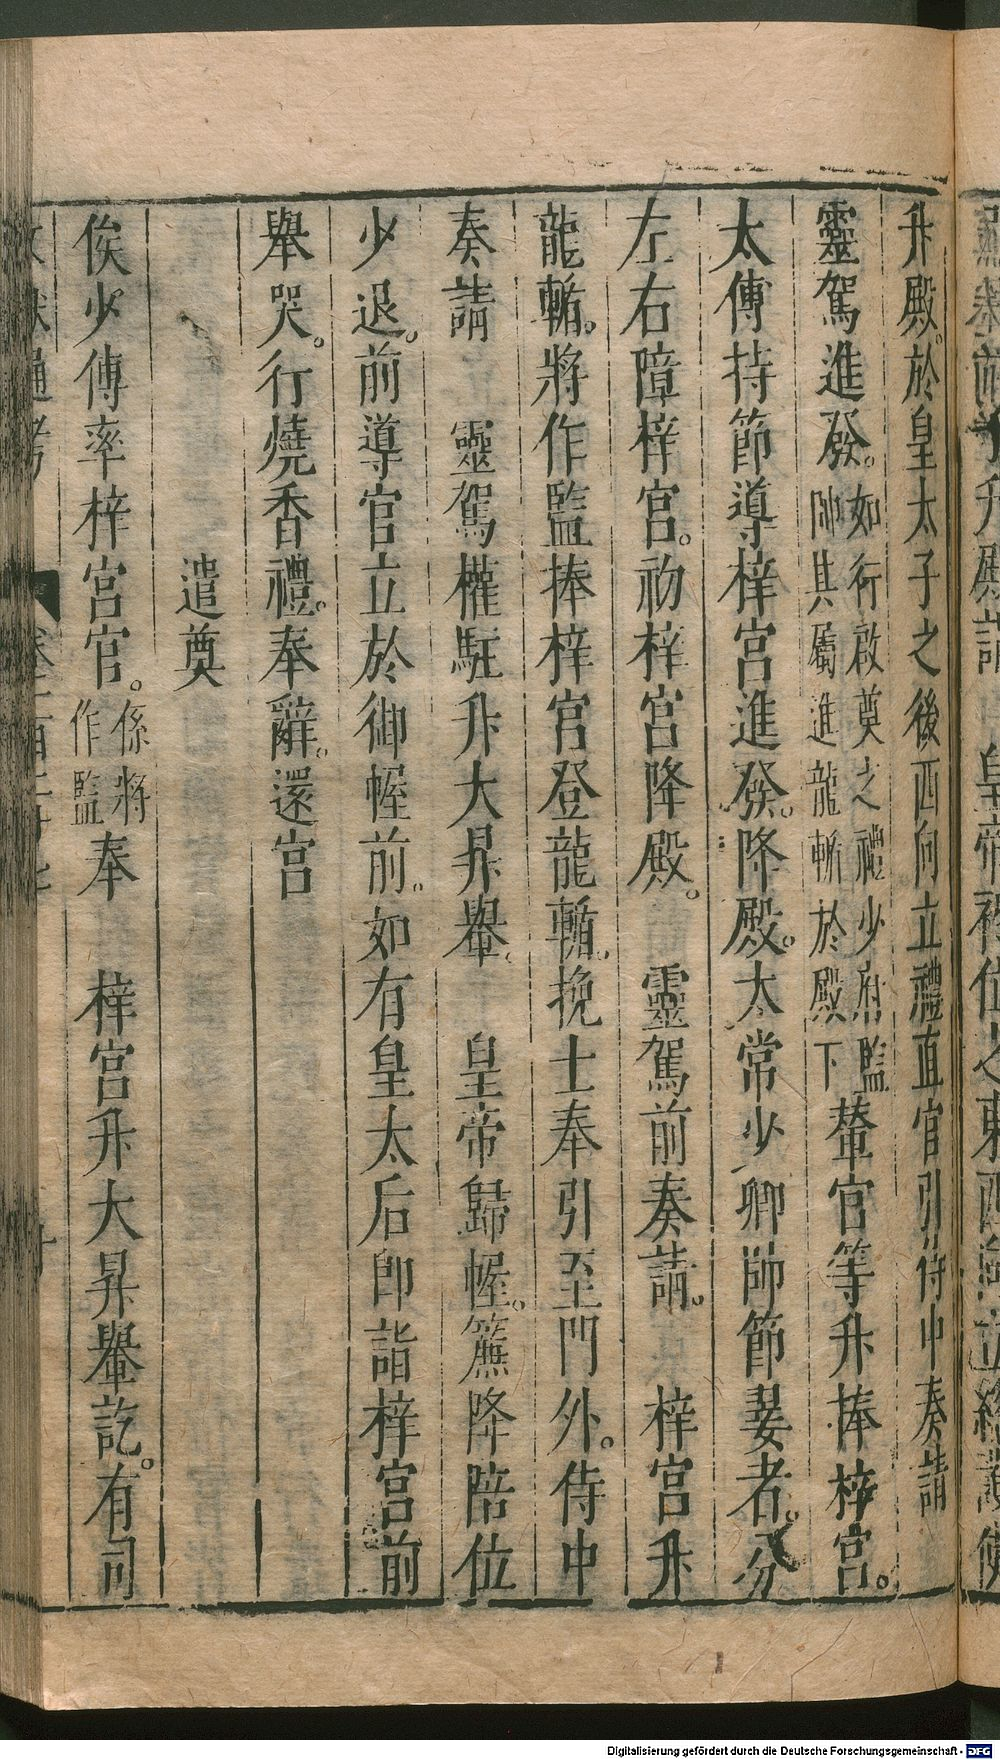 升殿。於皇太子之後西向立禮直官引侍中奏請
靈駕進發。如行啟奠之禮少府監帥其屬進龍輴於殿下輦官等升捧梓宮。
太傅持節導梓宮進發。降殿。太常少卿帥節翣者。分
左右障梓宮。初梓宮降殿。 靈駕前奏請。 梓宮升
龍輴。將作監捧梓宮登龍輴。挽士奉引至門外。侍中
奏請 靈駕權駐升大昇轝。 皇帝歸幄。簾降陪位
少退。前導官立於御幄前。如有皇太后即詣梓宮前
舉哭。行燒香禮。奉辭。還宮
遣奠
俟少傅率梓宮官。係將作監奉 梓宮升大昇轝訖。有司
Digitalisierung gefördert durch die Deutsche Forschungsgemeinschaft - DFG